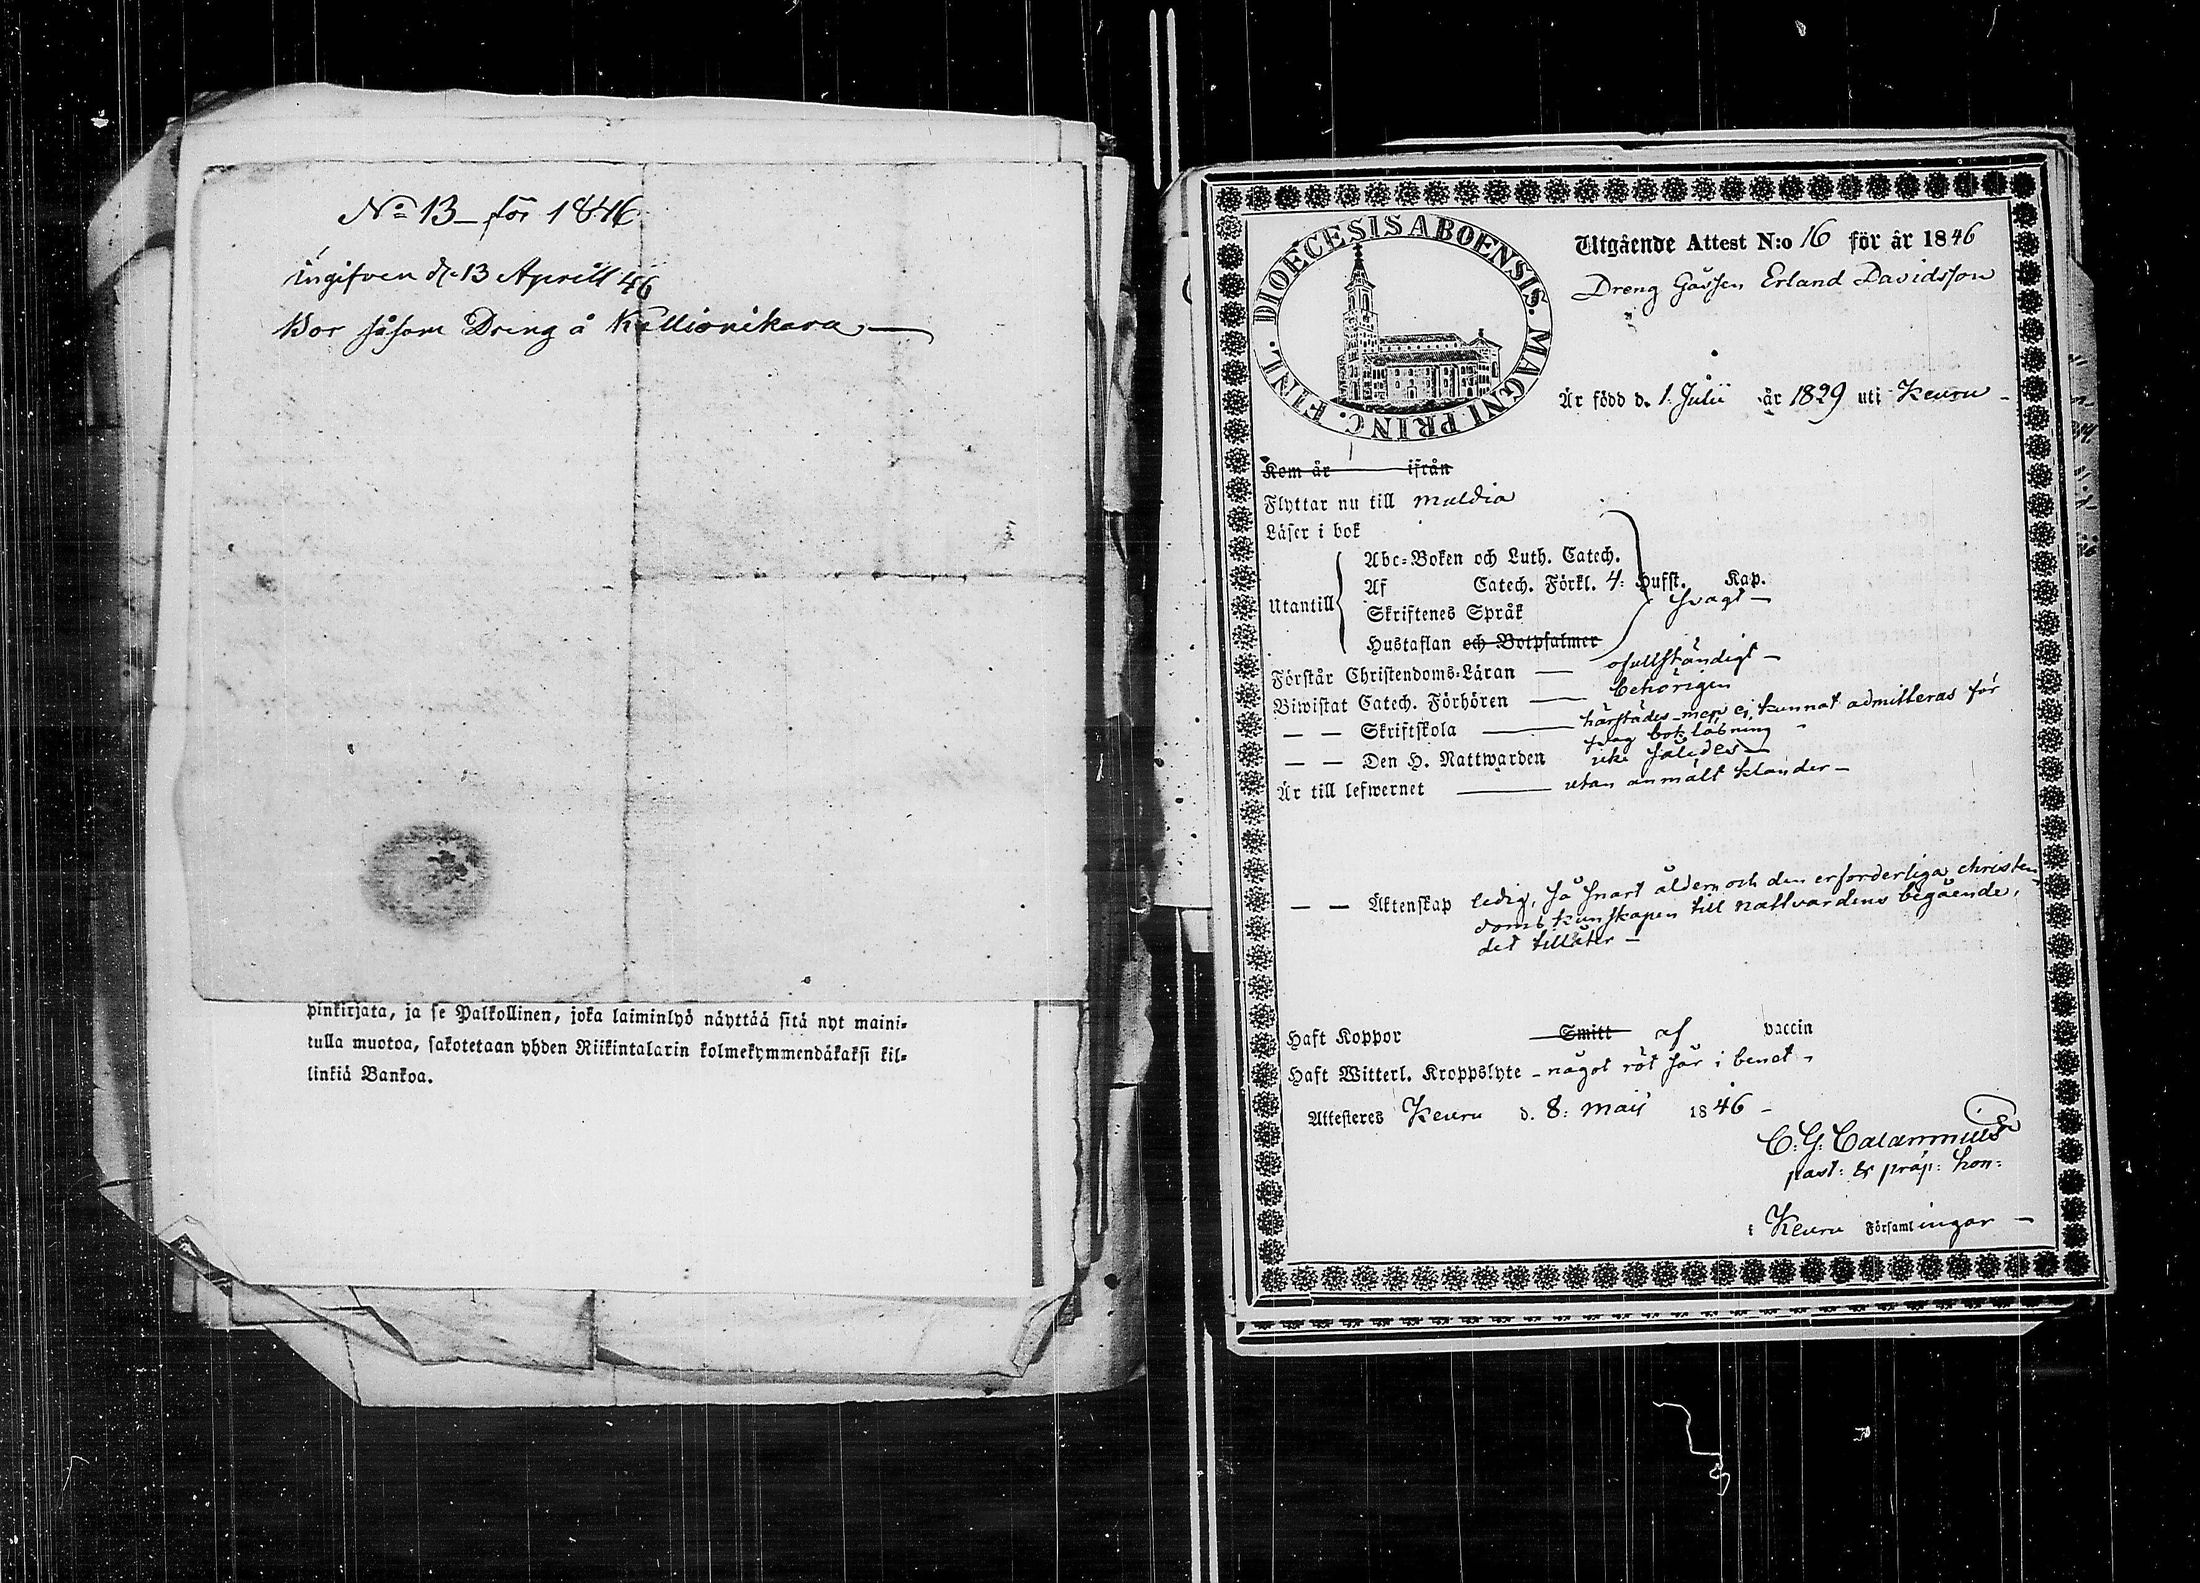 No 13 – för 1846
ingifven d. 13 Aprill 46
Bor såsom Dreng å Kallionikara –
pinkirjata, ja se Palkollinen, joka laiminlyö näyttää sitä nyt maini-
tulla muotoa, sakotetaan yhden Riikintalarin kolmekymmendäkaksi kil-
linkiä Bankoa.
DIOECESIS ABOENSIS. MAGNI PRINC. FINL.
Utgående Attest N:o 16 för år 1846
Dreng Gåssen Erland Davidsson
Är född d. 1. Julii år 1829 uti Keuru –
Kom år ifrån
Flyttar nu till Muldia
Läser i bok
Utantill
Abc-Boken och Luth. Catech.
Af Catech. Förkl. 4: Hufst. Kap.
Skriftenes Språk
svagt –
Hustaflan och Botpsalmer
Förstår Christendoms-Läran — ofullständigt –
Biwistat Catech. Förhören — behörigen
— — Skriftskola — härstädes men ej kunnat admitteras för
svag bokläsning
— — Den H. Nattwarden icke således –
Är till lefwernet — utan anmält klander –
— — Äktenskap ledig, så snart åldern och den erforderliga christen-
doms kunskapen till nattvardens begående,
det tillåter –
Haft Koppor Smitt af vaccin
Haft Witterl. Kroppslyte – något röt sår i benet –
Attesteres Keuru d. 8: Maij 1846 –
C. G. Calamnius
past: & præp: hon:
i Keuru Församlingar –